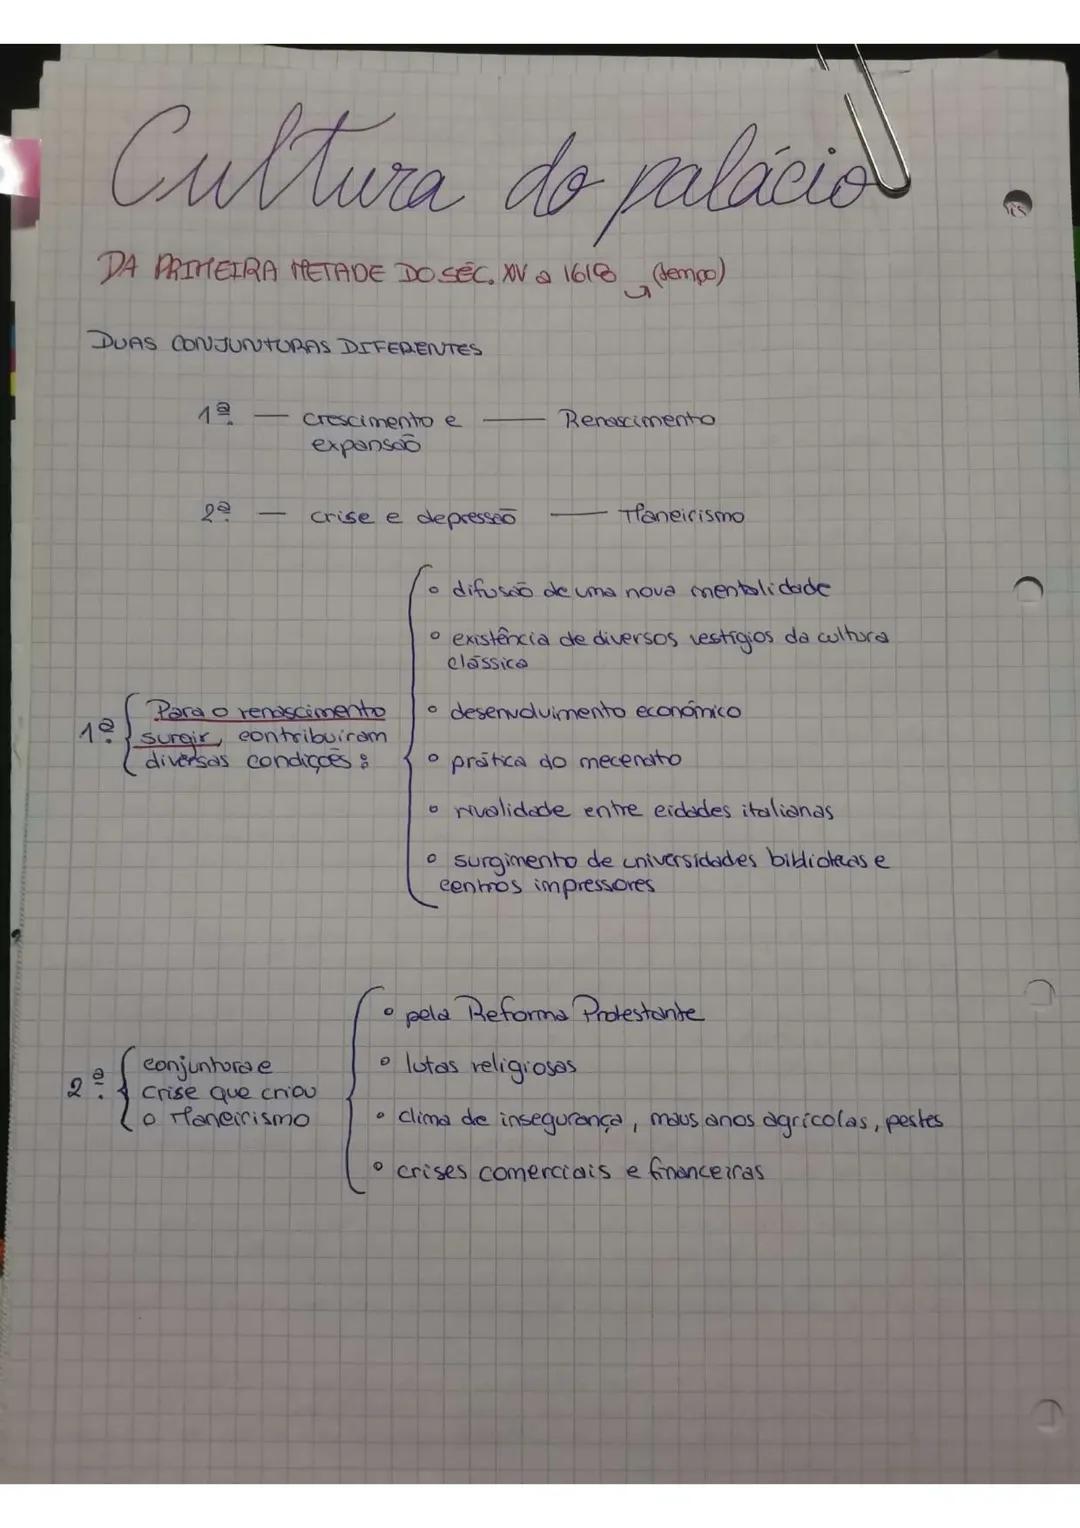 Cultura do palácio
DA PRIMEIRA METADE DO SÉC. XIV a 1618 (tempo)
DUAS CONJUNTURAS DIFERENTES
1ª — crescimento e — Renascimento
expansão
2ª — crise e depressão — Maneirismo
• difusão de uma nova mentalidade
• existência de diversos vestígios da cultura
clássica
1ª Para o renascimento
surgir, contribuiram
diversas condições:
• desenvolvimento económico
• prática do mecenato
• rivalidade entre cidades italianas
• surgimento de universidades bibliotecas e
centros impressores
2ª conjuntura e
crise que criou
o Maneirismo
• pela Reforma Protestante
• lutas religiosas
• clima de insegurança, maus anos agrícolas, pestes
• crises comerciais e financeiras